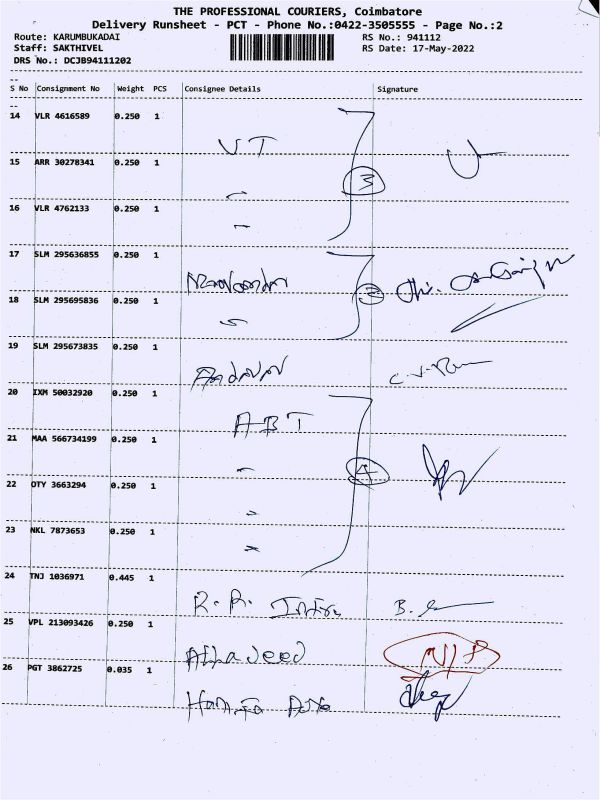 THE PROFESSIONAL COURIERS, Coimbatore
Delivery Runsheet - PCT - Phone No.:0422-3505555 - Page No.:2
Route: KARUMBUKADAI RS No.: 941112
Staff: SAKTHIVEL RS Date: 17-May-2022
DRS No.: DCJB94111202
S No Consignment No Weight PCS Consignee Details Signature
14 VLR 4616589 0.250 1
VT
15 ARR 30278341 0.250 1
3
16 VLR 4762133 0.250 1
17 SLM 295636855 0.250 1
2
18 SLM 295695836 0.250 1
19 SLM 295673835 0.250 1
20 IXM 50032920 0.250 1
ABT
21 MAA 566734199 0.250 1
4
22 OTY 3663294 0.250 1
23 NKL 7873653 0.250 1
24 TNJ 1036971 0.445 1
R.R. Infra B.
25 VPL 213093426 0.250 1
26 PGT 3862725 0.035 1